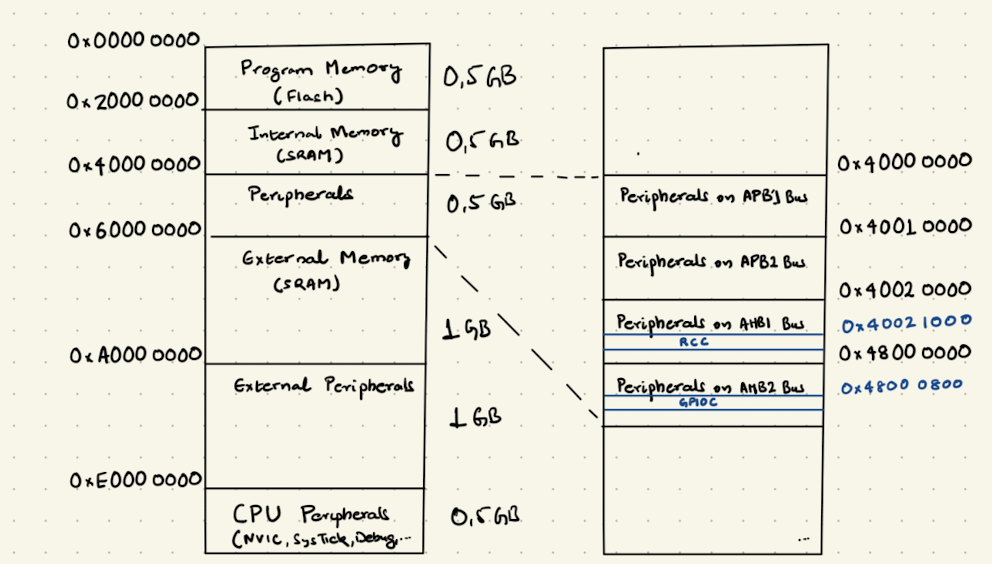 0x0000 0000
Program Memory
(Flash)
0,5 GB
0x2000 0000
Internal Memory
(SRAM)
0,5 GB
0x4000 0000
Peripherals
0,5 GB
0x6000 0000
External Memory
(SRAM)
1 GB
0xA000 0000
External Peripherals
1 GB
0xE000 0000
CPU Peripherals
(NVIC, SysTick, Debug,...
0,5 GB
0x4000 0000
Peripherals on APB1 Bus
0x4001 0000
Peripherals on APB2 Bus
0x4002 0000
Peripherals on AHB1 Bus
0x4002 1000
RCC
0x4800 0000
Peripherals on AHB2 Bus
0x4800 0800
GPIOC
...